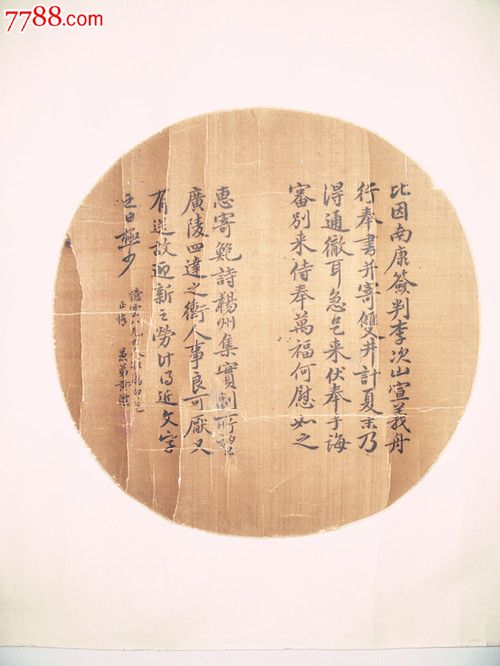 7788.com
比因南康簽判李次山宣義舟
行奉書并寄雙井計夏末乃
得通徹耳急足来伏奉手誨
審別来侍奉萬福何慰如之
惠寄鮑詩揚州集實副所望
廣陵四達之衝人事良可厭又
有送故迎新之勞計得近文字
之日極少
正